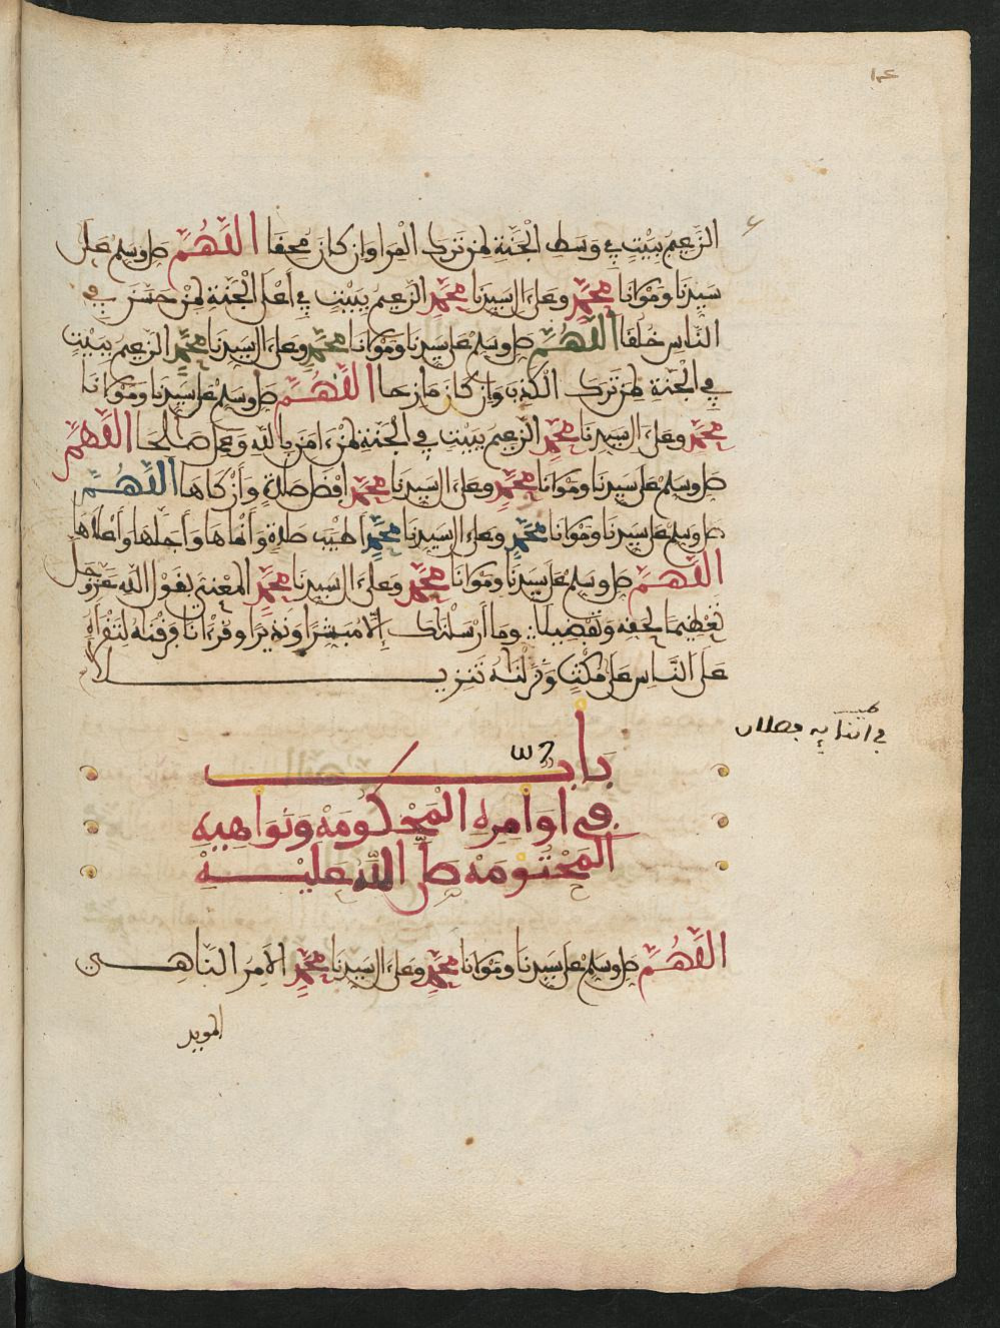 الزعيم ببيت في وسط الجنة لمن ترك المرا وان كان محقا اللهم صل وسلم على
سيدنا ومولانا محمد وعلى ءال سيدنا محمد الزعيم ببيت في أعلى الجنة لمن حسن في
الناس خلقا اللهم صل وسلم على سيدنا ومولانا محمد وعلى ءال سيدنا محمد الزعيم ببيت
في الجنة لمن ترك الكذب وان كان مازحا اللهم صل وسلم على سيدنا ومولانا
محمد وعلى ءال سيدنا محمد الزعيم ببيت في الجنة لمن ءامن بالله وعمل صلحا اللهم
صل وسلم على سيدنا ومولانا محمد وعلى ءال سيدنا محمد افضل صلاة وأزكاها اللهم
صل وسلم على سيدنا ومولانا محمد وعلى ءال سيدنا محمد أطيب صلاة وأنماها وأجلها وأعلاها
اللهم صل وسلم على سيدنا ومولانا محمد وعلى ءال سيدنا محمد المعني بقول الله عز وجل
تعظيما لحقه وتفضيلا وما أرسلنك إلا مبشرا ونذيرا وقرءانا فرقنه لتقرأه
على الناس على مكث ونزلنه تنزيلا
باب
في اوامره المحكومة ونواهيه
المحتومة صلى الله عليه
اللهم صل وسلم على سيدنا ومولانا محمد وعلى ءال سيدنا محمد الامر الناهي
المويد